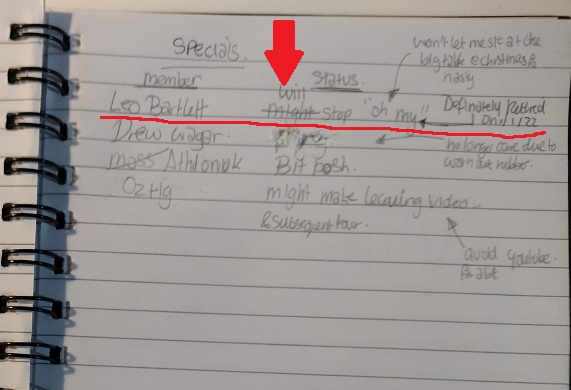 Specials.
member
Status
Leo Bartlett
will
might stop "oh my"
Definately Retired
1 on 1/1/22
won't let me sit at the
big table @ christmas &
nasty.
Drew wagar.
no longer care due to
worn out rubber.
mass Athlonuk
Bit posh.
Oz Hg
might make leaving video
& subsequent tour.
avoid youtube
for a bit